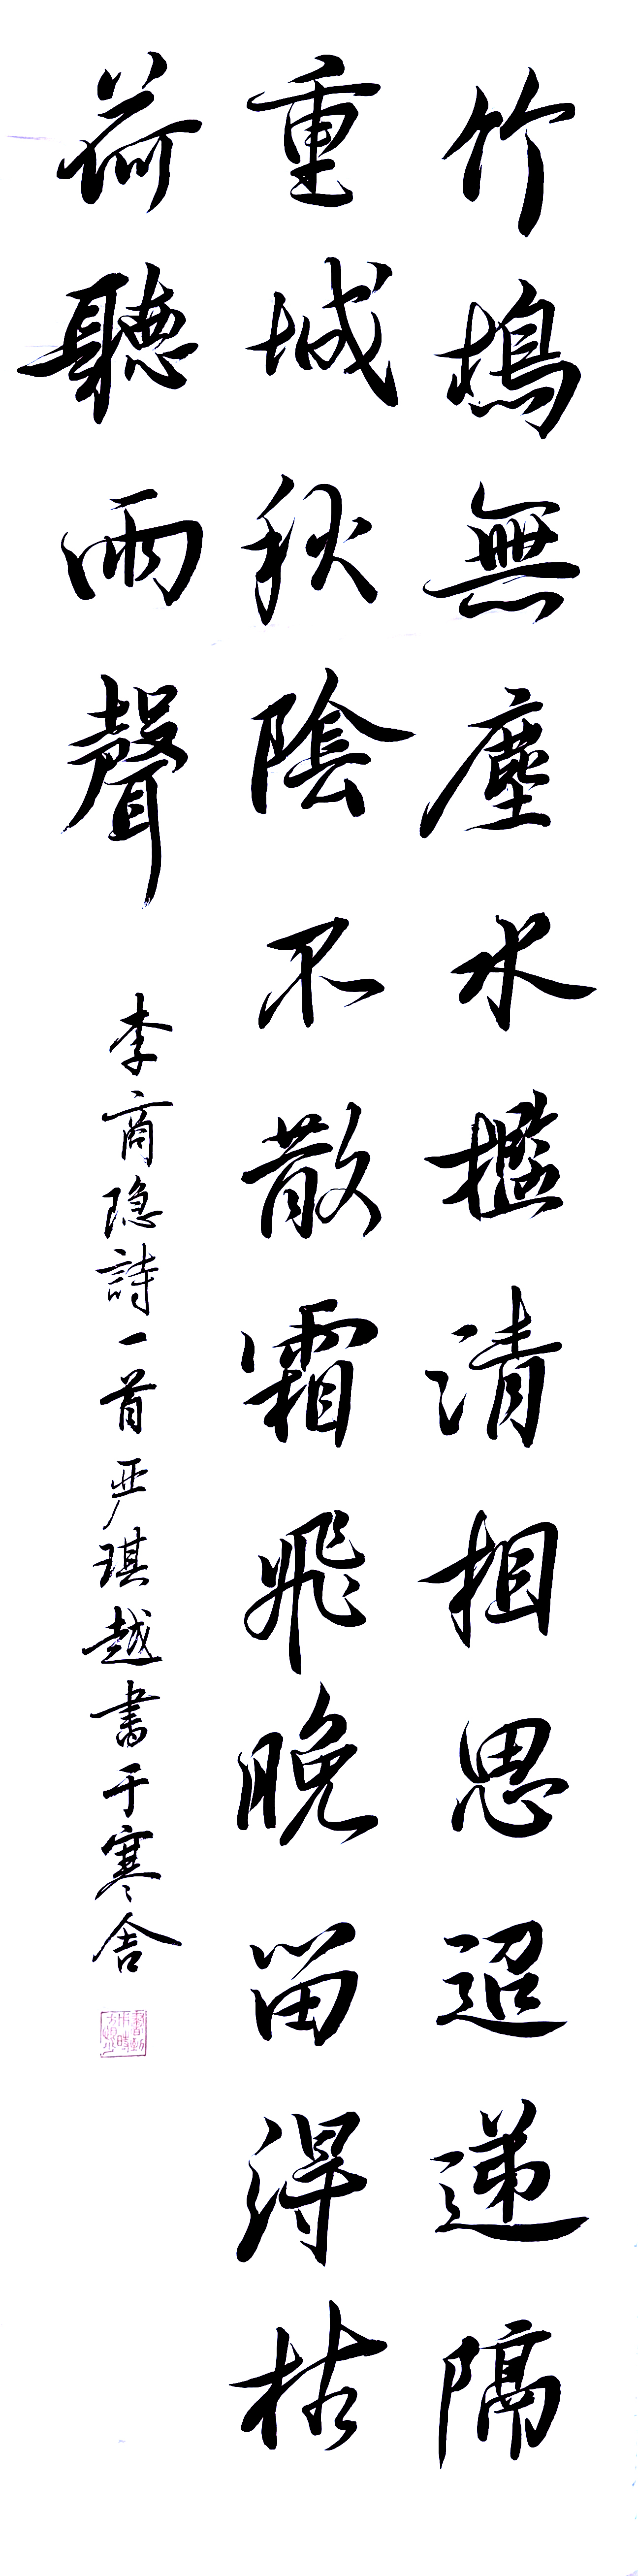 竹塢無塵水檻清相思迢遞隔
重城秋陰不散霜飛晚留得枯
荷聽雨聲
李商隐詩一首严琪越書于寒舍